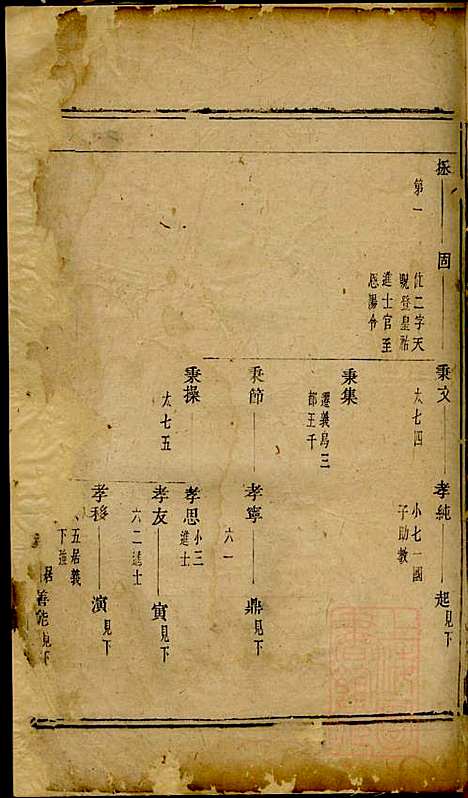 拯
第一
固
仕二字天
貺登皇祐
進士官至
恩陽令
秉文
太七四
孝純
小七一國
子助教
起見下
秉集
遷義烏三
都王千
秉節
孝寧
六一
鼎見下
秉操
太七五
孝思
小三
進士
孝友
六二進士
寅見下
孝移
五居義
下強
演見下
居
善能見下